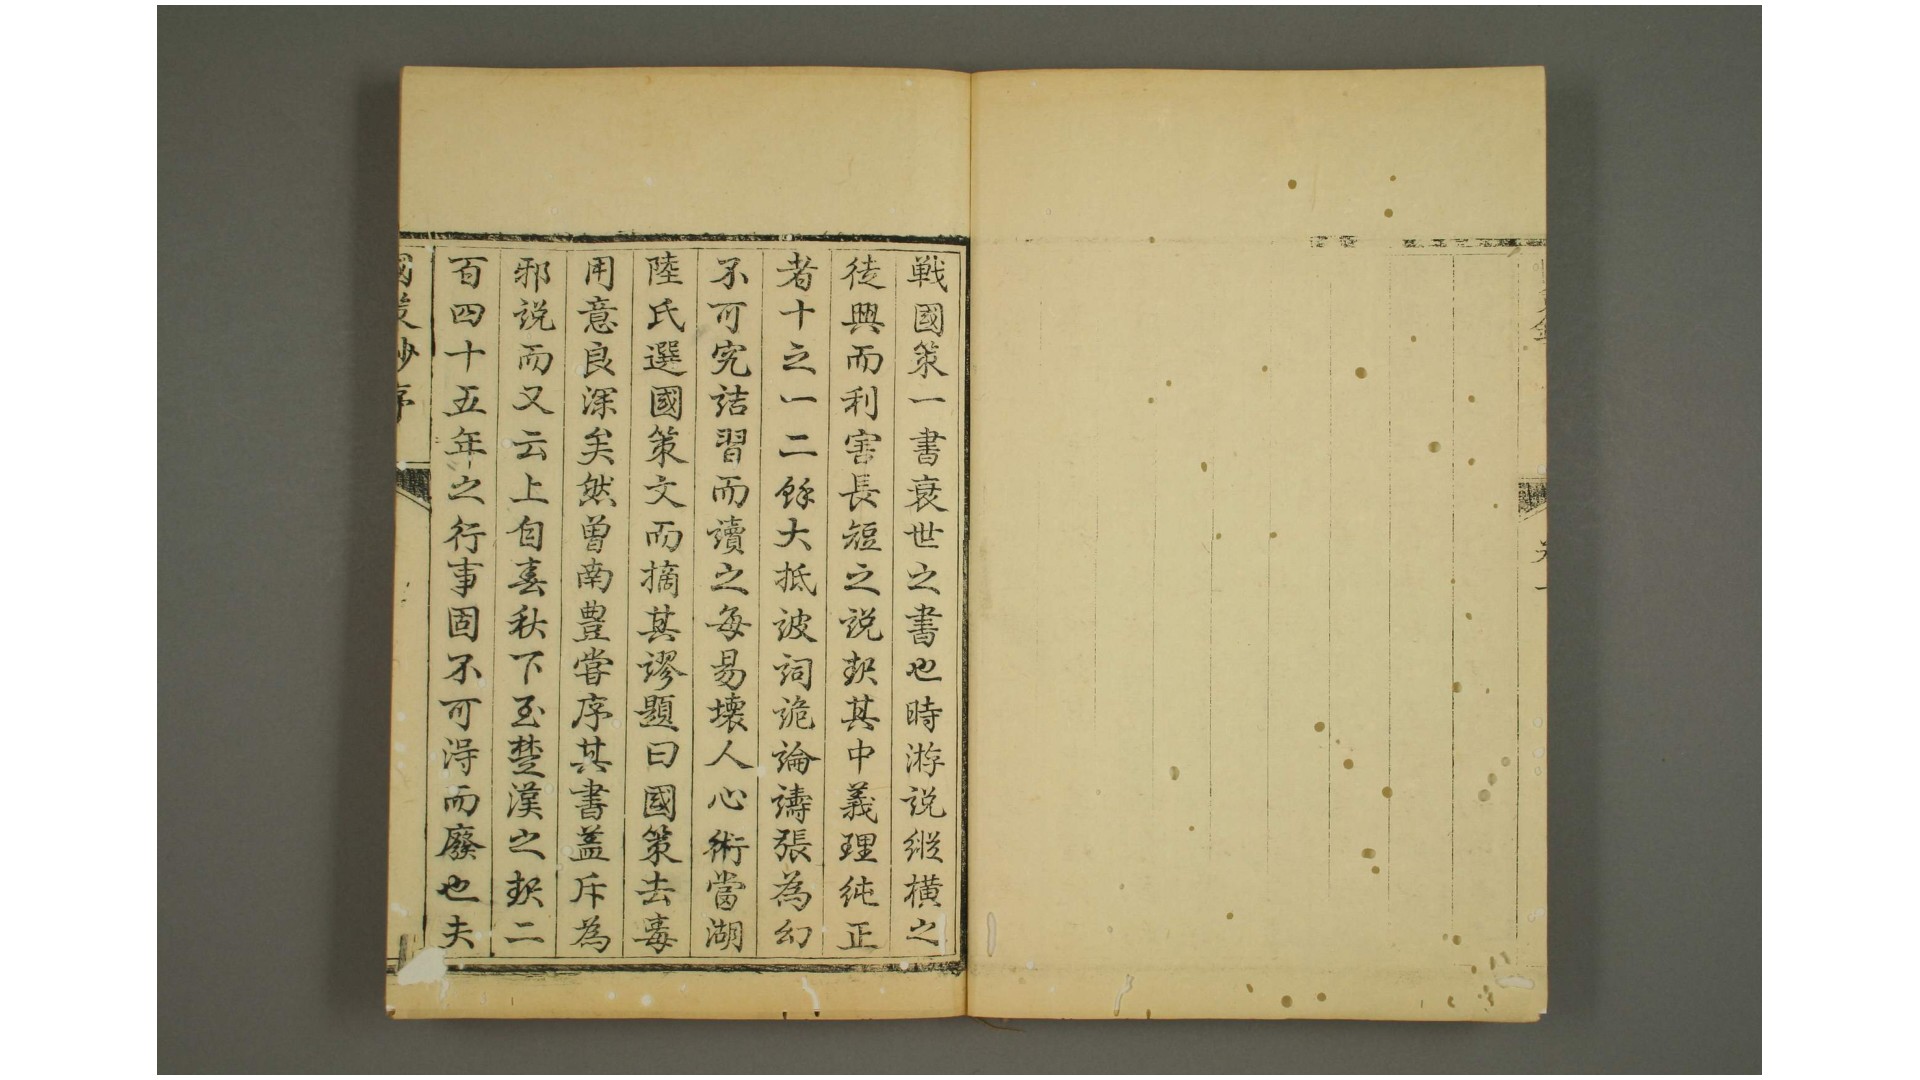 戰國策一書衰世之書也時游説縱橫之
徒興而利害長短之説熾其中義理純正
者十之一二餘大抵波詞詭論譸張為幻
不可究詰習而讀之每易壞人心術當湖
陸氏選國策文而摘其謬題曰國策去毒
用意良深矣然曾南豊嘗序其書盖斥為
邪説而又云上自春秋下至楚漢之起二
百四十五年之行事固不可淂而廢也夫
國策抄序